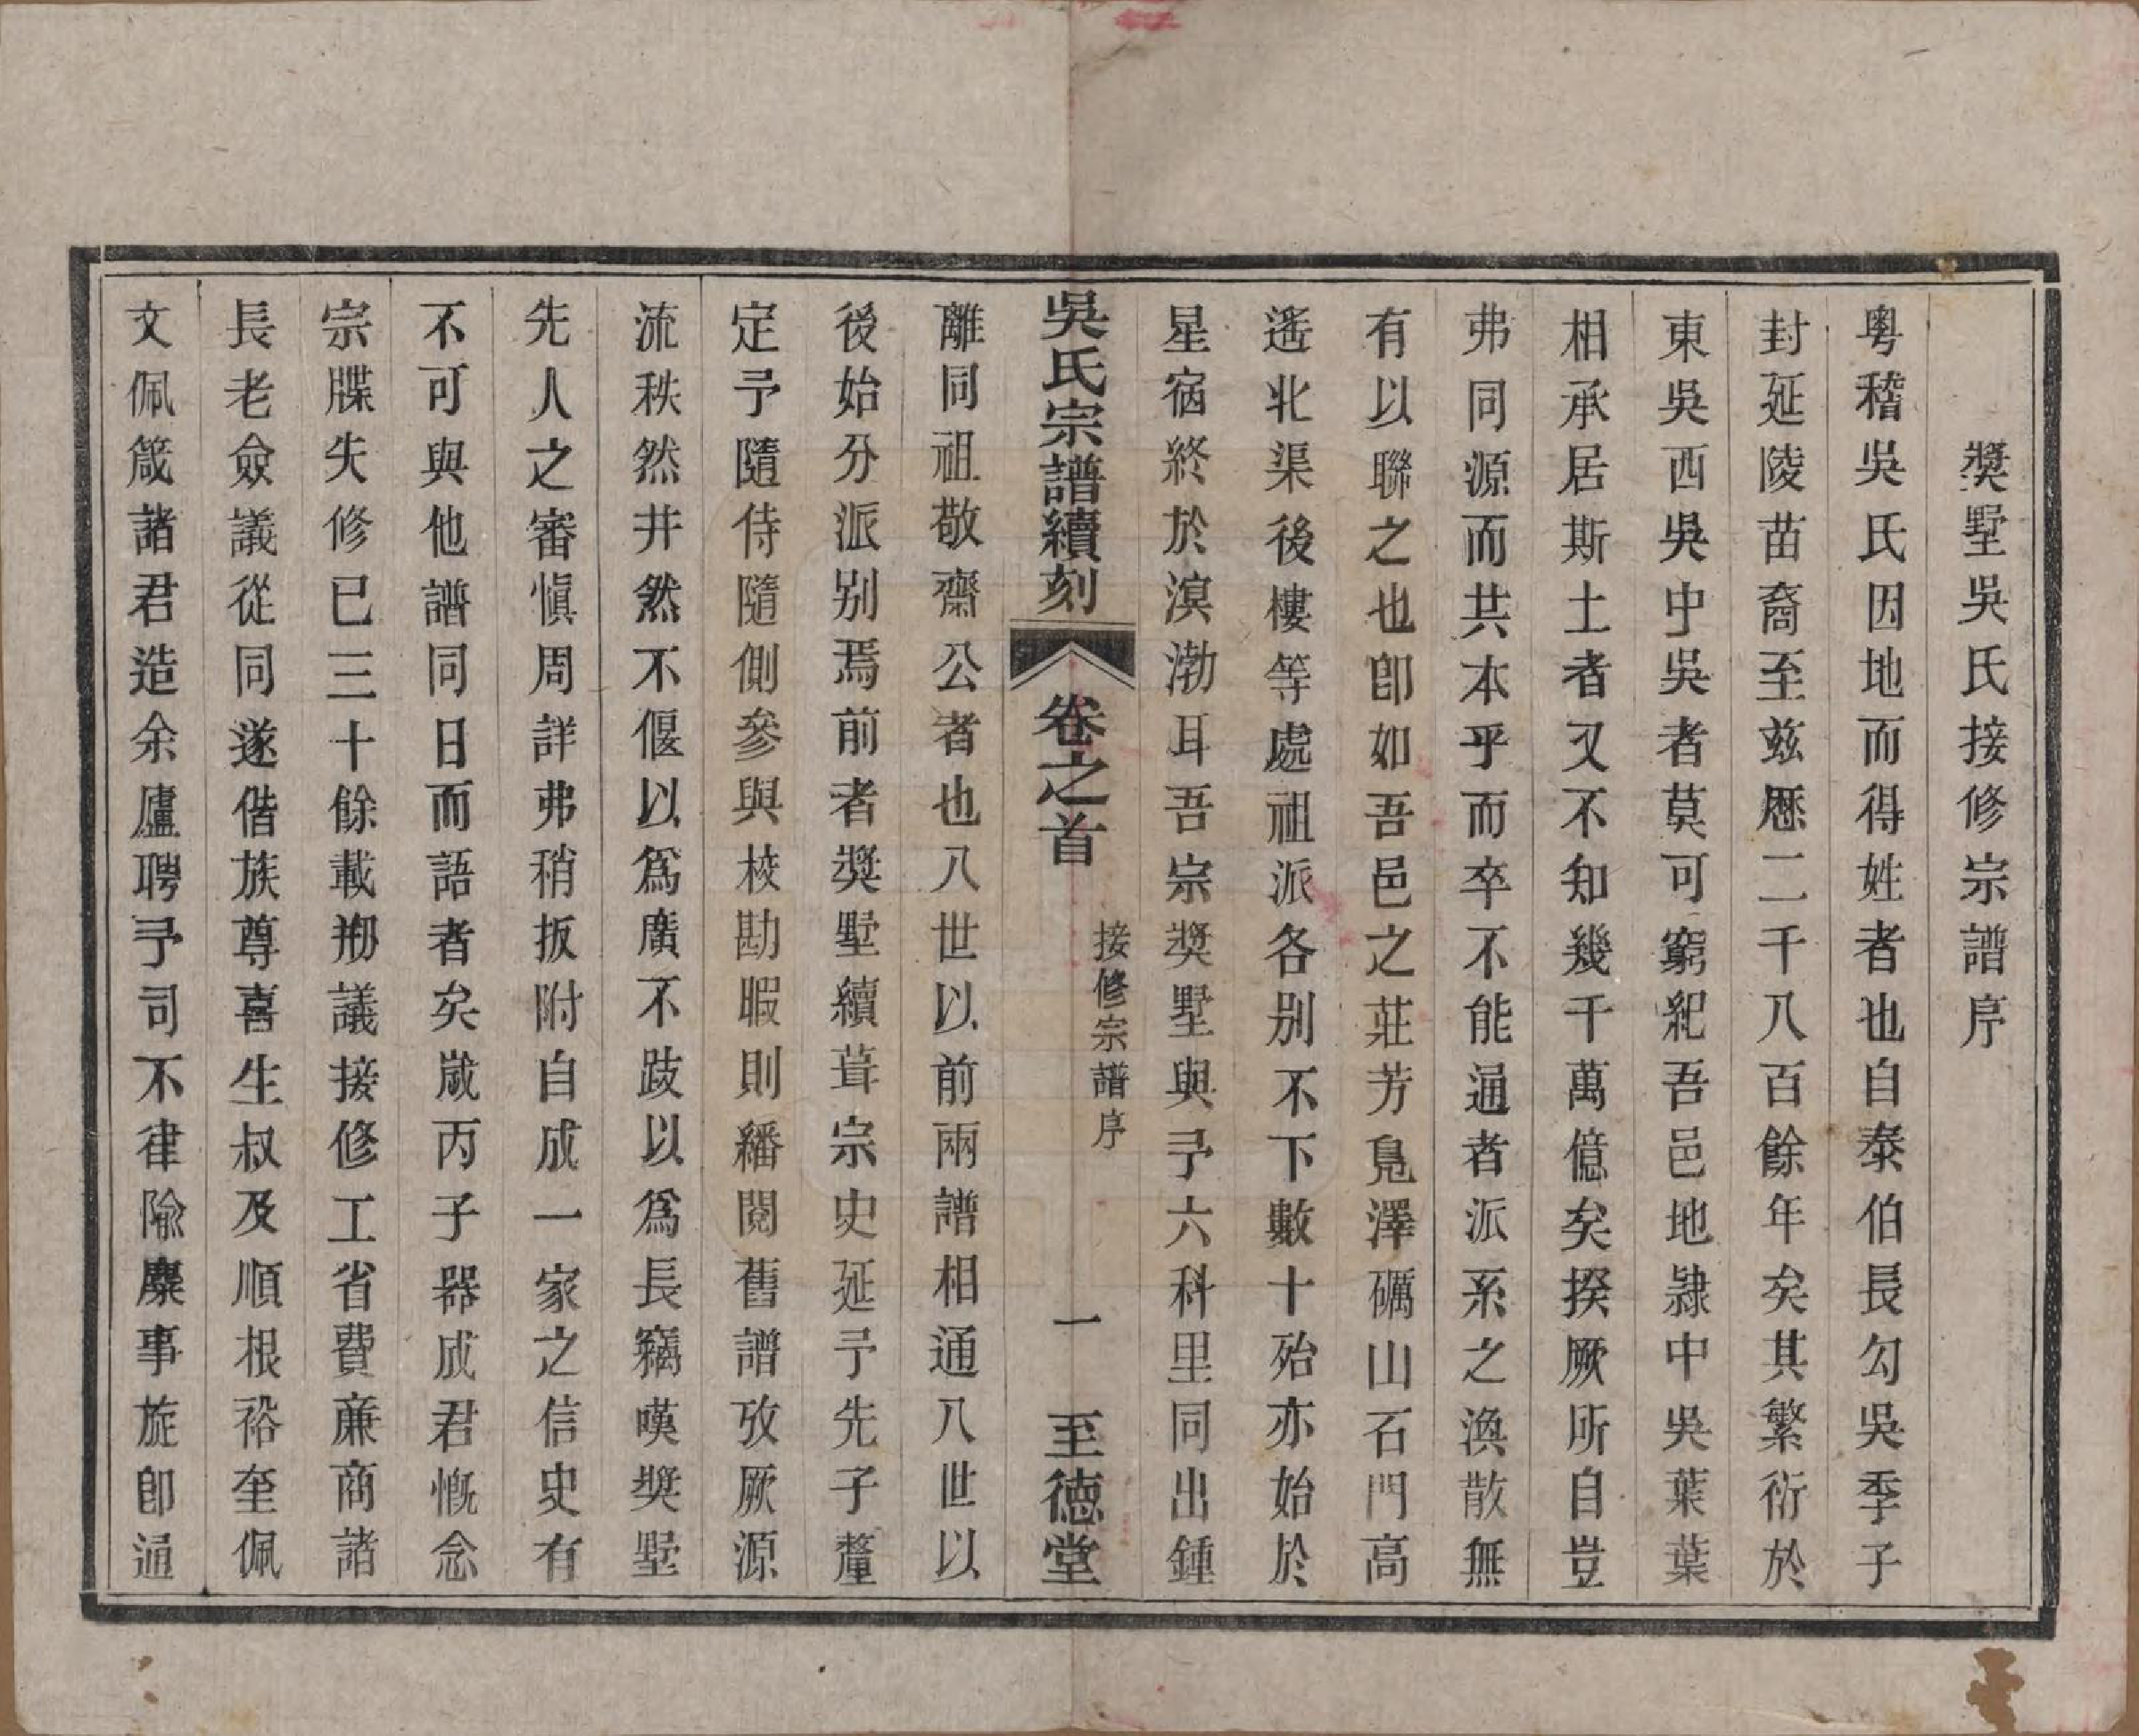 獎墅吳氏接修宗譜序
粤稽吳氏因地而得姓者也自泰伯長勾吳季子
封延陵苗裔至兹歷二千八百餘年矣其繁衍於
東吳西吳中吳者莫可窮紀吾邑地隷中吳葉葉
相承居斯土者又不知幾千萬億矣揆厥所自豈
弗同源而共本乎而卒不能通者派系之渙散無
有以聯之也卽如吾邑之莊芳鳧澤礪山石門高
遙北渠後樓等處祖派各别不下數十殆亦始於
星宿終於溟渤耳吾宗獎墅與予六科里同出鍾
吳氏宗譜續刻
卷之首
接修宗譜序
一
至德堂
離同祖敬齋公者也八世以前兩譜相通八世以
後始分派别焉前者獎墅續葺宗史延予先子釐
定予隨侍隨側參與校勘暇則繙閱舊譜攷厥源
流秩然井然不偃以爲廣不跂以爲長竊嘆獎墅
先人之審愼周詳弗稍扳附自成一家之信史有
不可與他譜同日而語者矣歲丙子器成君慨念
宗牒失修已三十餘載刱議接修工省費亷商諸
長老僉議從同遂偕族尊喜生叔及順根裕奎佩
文佩箴諸君造余廬聘予司不律隃麋事旋卽通